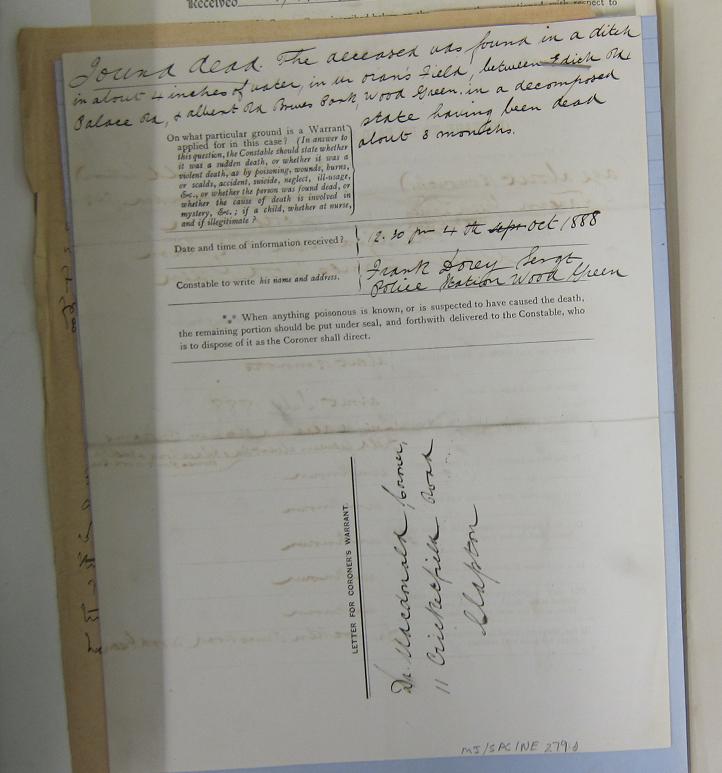 Received
respect to
Found dead. The deceased was found in a ditch
in about 4 inches of water, in Field, between
Palace Rd, & Albert Rd Bowes Park, Wood Green, in a decomposed
state having been dead
about 3 months.
On what particular ground is a Warrant
applied for in this case? (In answer to
this question, the Constable should state whether
it was a sudden death, or whether it was a
violent death, as by poisoning, wounds, burns,
or scalds, accident, suicide, neglect, ill-usage,
&c., or whether the person was found dead, or
whether the cause of death is involved in
mystery, &c.; if a child, whether at nurse,
and if illegitimate?
Date and time of information received?
12.30 pm 4th Sept Oct 1888
Constable to write his name and address.
Frank Dorey Sergt
Police Station Wood Green
*** When anything poisonous is known, or is suspected to have caused the death,
the remaining portion should be put under seal, and forthwith delivered to the Constable, who
is to dispose of it as the Coroner shall direct.
LETTER FOR CORONER'S WARRANT.
Dr. Macdonald Coroner,
11 Cricketfield Road
Clapton
MJ/SPC/NE 279